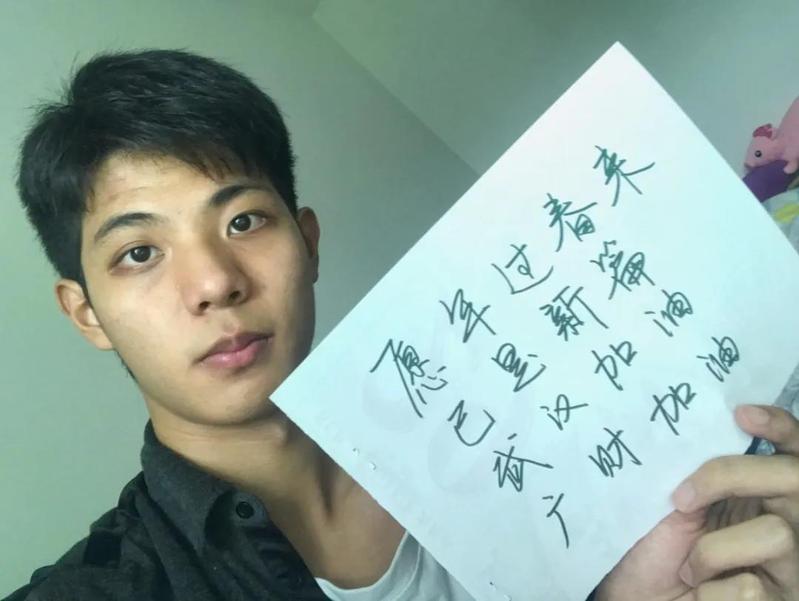 愿年过春来
已是新篇
武汉加油
广财加油